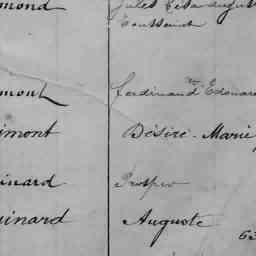 mond Jules César August
Toussaint
mont Ferdinand Edouard
imont Désiré - Marie
inard Prosper
uinard Auguste
63